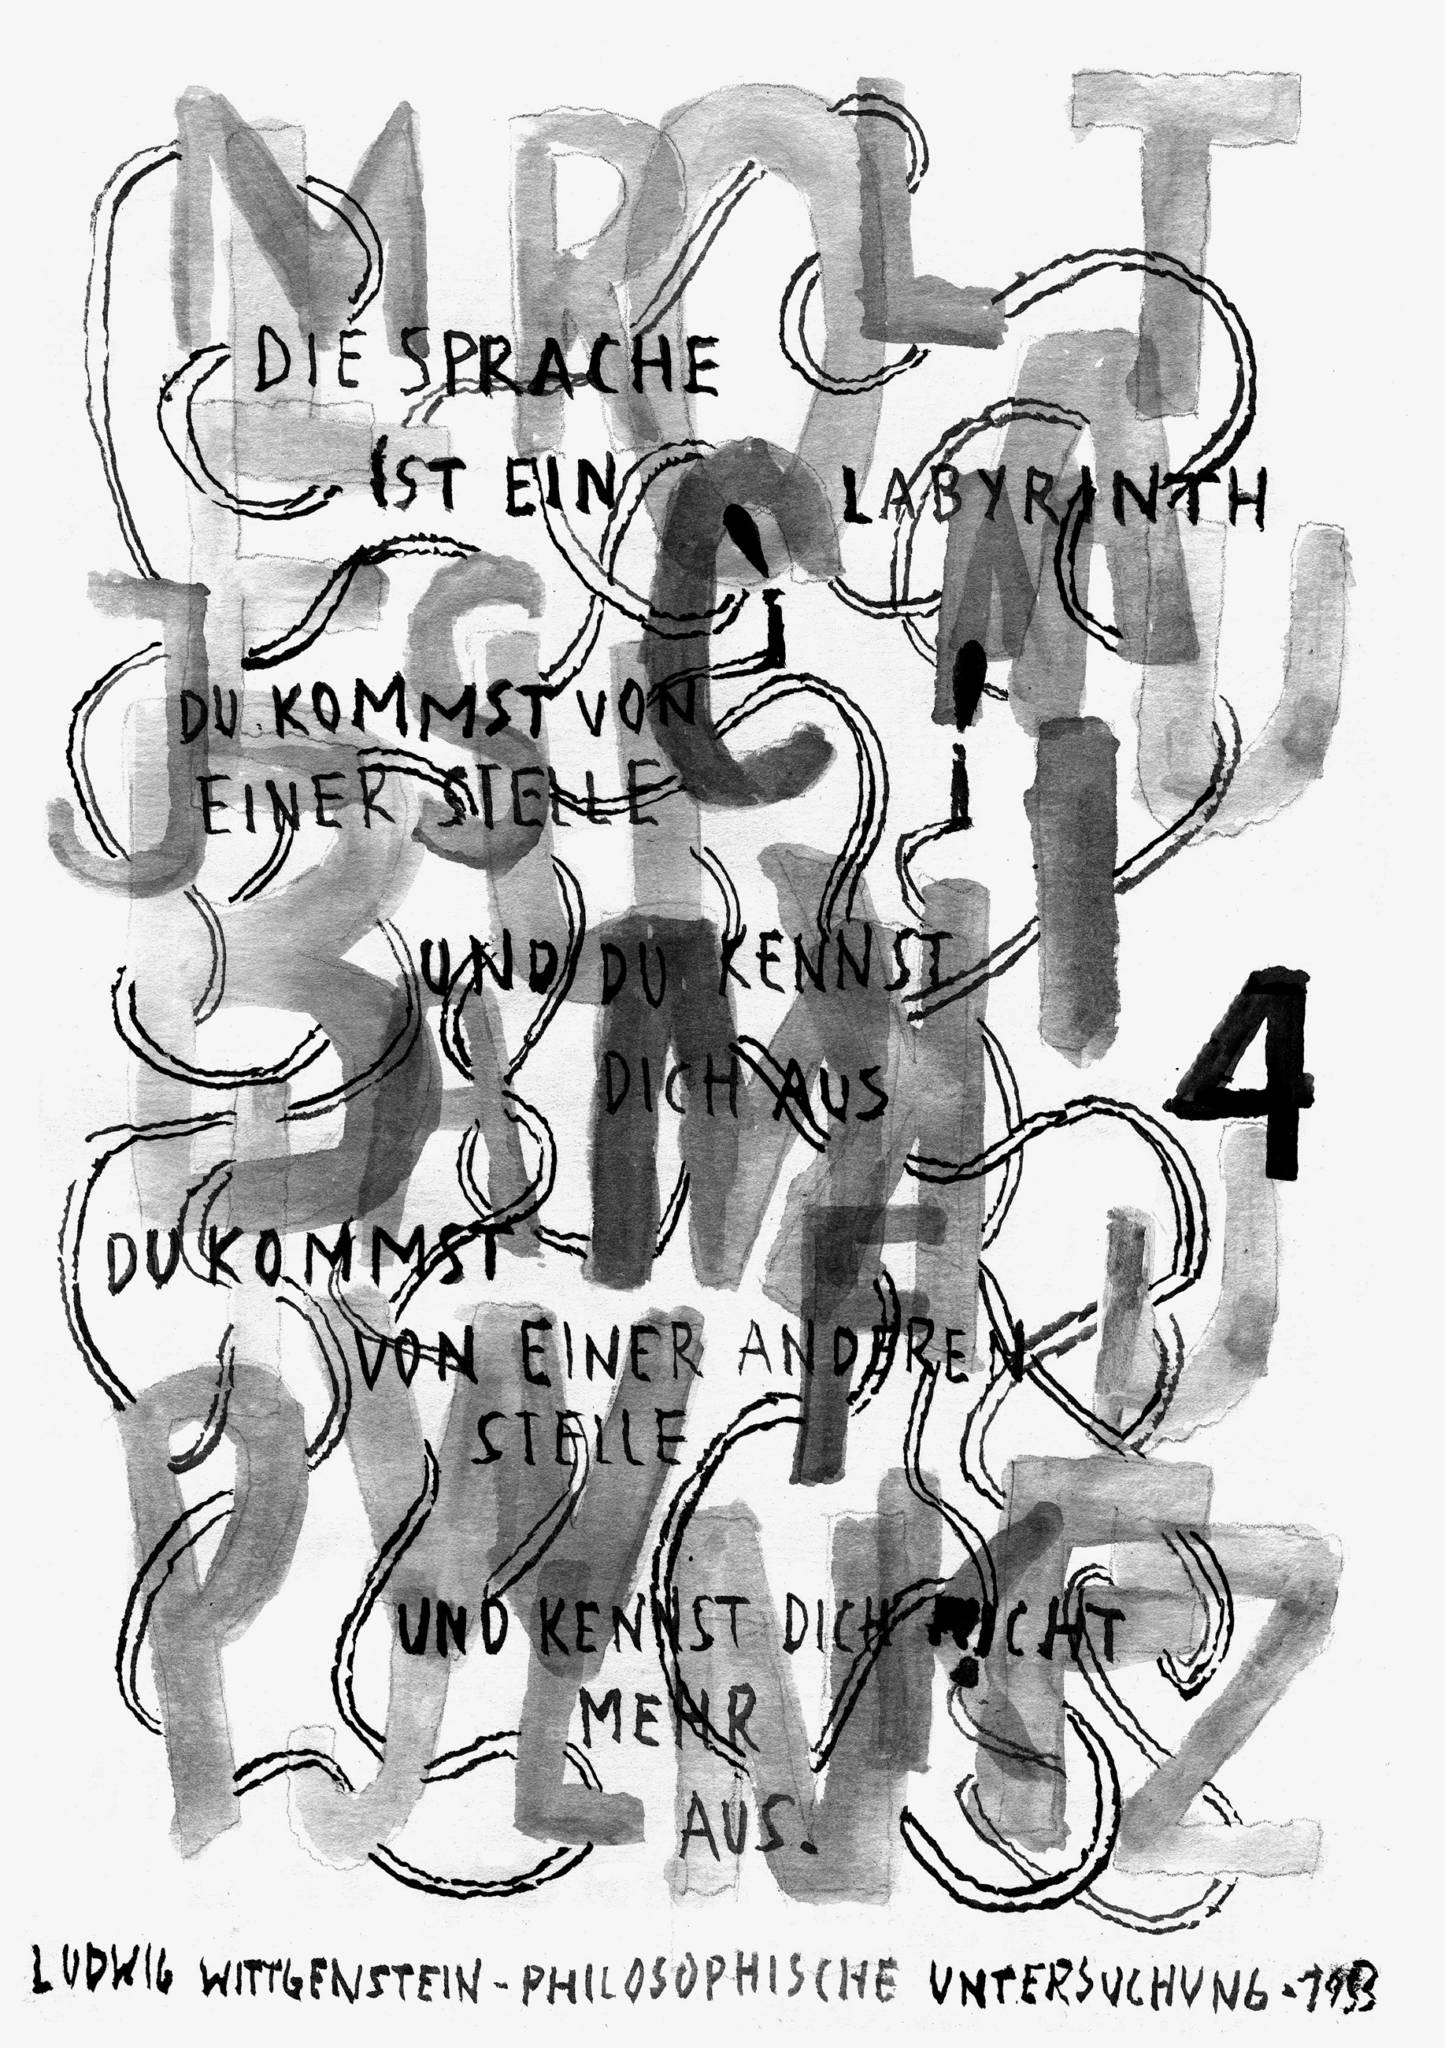 DIE SPRACHE
IST EIN LABYRINTH
DU KOMMST VON
EINER STELLE
UND DU KENNST
DICH AUS
4
DU KOMMST
VON EINER ANDEREN
STELLE
UND KENNST DICH NICHT
MEHR
AUS.
LUDWIG WITTGENSTEIN - PHILOSOPHISCHE UNTERSUCHUNG - 1953